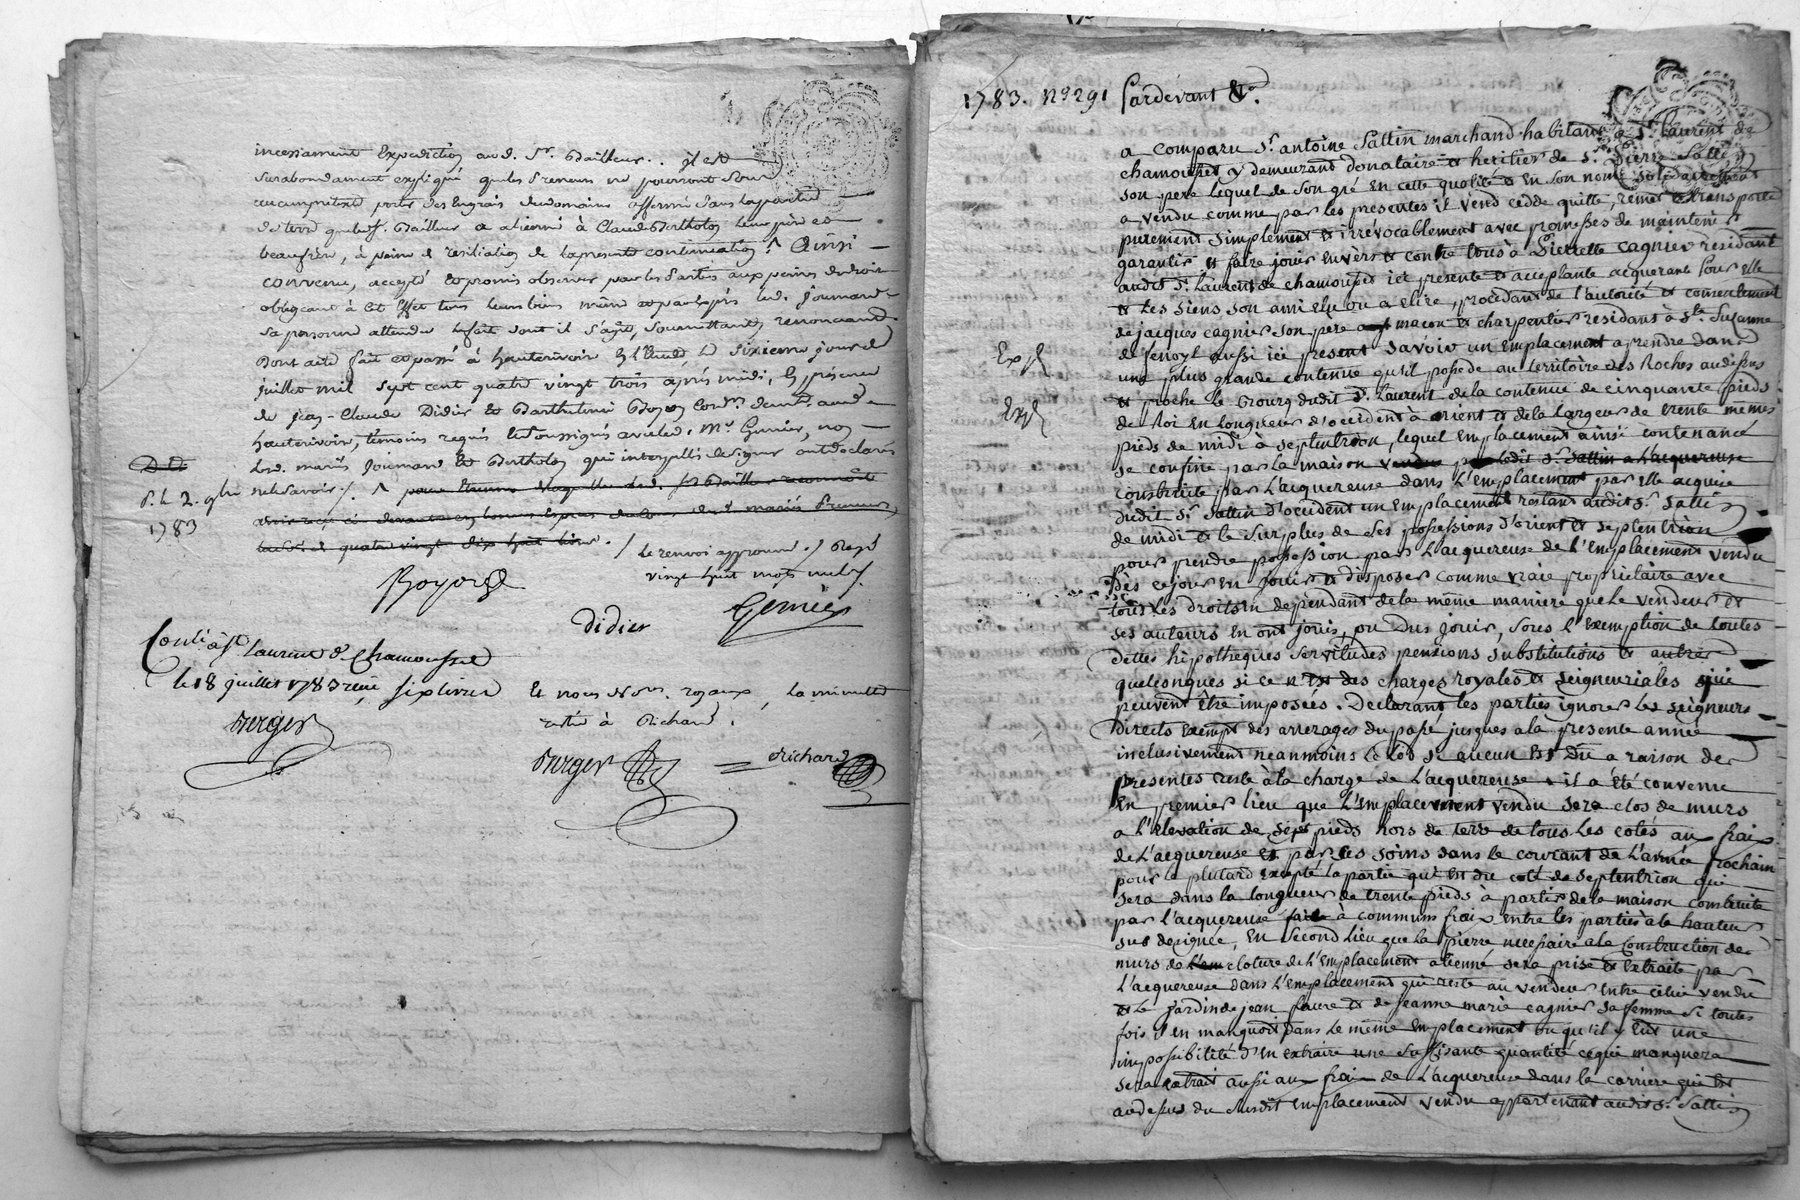 incessament Expedition aud. Sr. Bailleur. il est
surabondament expliqué que les Preneurs ne pourront sous
aucun pretexte porter des Engrais du domaine affermé dans la portion
de terre que led. Sr. Bailleur a aliené à Claude Bertholon leur père et
beaufrère, à peine de resiliation de la presente continuation ^ Ainsi
convenu, accepté et promis observer par les Parties aux peines de droit
obligeant à cet Effet tous leurs biens même et par Exprès led. Joumard
sa personne attendu le fait dont il s'agit, soumettant, renonceant.
Dont acte fait et passé à hauterivoire En l'Etude le sixieme jour de
juillet mil sept cent quatre vingt trois après midi, En présence
de Jean-Claude Didier et Barthelemi Boyer Cord.rs demt. aud.
hauterivoire, témoins requis et soussignés avec led. Me. Gernier, non
Les d. mariés Joumard et Bertholon qui interpellés de signer ont declarés
ne le savoir /. ^
D. D.
P. L. 2. 9bre
1783
/ Le renvoi approuvé. / Rayé
vingt huit mots nuls /.
Boyer
Didier
Gernier
Conlé à St. Laurent de Chamousset
le 18 juillet 1783 reçu six livres
Berger
Et nous Nores. royaux, la minutte
restée à Richard.
Berger = Richard
1783. No 291 Pardevant &a.
a comparu Sr. antoine Sattin marchand habitant à St. Laurent de
chamousset y demeurant donataire et heritier de Sr. Pierre Sattin
son pere lequel de son gré En cette qualité et En son nom solidairement
a vendu comme par les presentes il vend cedde quitte, remet et transporte
purement simplement et irrévocablement avec promesses de maintenir
garantir et faire jouir Envèrs et contre tous à Pierrette cagnier residant
audit St. Laurent de chamousset ici presente et acceptante acquerante Pour Elle
et Les siens son ami elu ou a Elire, procedant de l'autorité et consentement
de jacques cagnier son pere maçon et charpentier residant à Ste. Suzanne
de fenoyl aussi ici present Savoir un Emplacement a prendre dans
une plus grande contenue qu'il possede au territoire des Roches audessus
et proche le Bourg dudit St. Laurent de la contenue de cinquante pieds
de Roi En longueur d'occident à orient et de la Largeur de trente mêmes
pieds de midi à septentrion, lequel Emplacement ainsi contenancé
se confine par la maison vendue par ledit Sr. Sattin a L'acquereuse
construite par L'acquereuse dans L'Emplacement par elle acquis
dudit Sr. Sattin d'occident un Emplacement restant audit Sr. Sattin
de midi et le surplus de ses possessions d'orient et septentrion
pour prendre possession par L'acquereuse de l'Emplacement vendu
Dès ce jour En jouir et disposer comme vraie propriétaire avec
tous Les droits En dependant de la même maniere que Le vendeur et
ses auteurs En ont jouis, ou Dus jouir, sous l'exemption de toutes
dettes hipotheques servitudes pensions substitutions et autres
quelconques si ce n'est des charges royales et seigneuriales qui
peuvent être imposées. Declarant les parties ignorer Les seigneurs
Directs exempt des arrerages du passé jusques a la presente année
inclusivement neanmoins Le Lod si aucun est Dû a raison des
presentes reste à la charge de L'acquereuse. il a été convenu
En premier lieu que L'Emplacement vendu sera clos de murs
a l'Elevation de sept pieds hors de terre de tous Les cotés au frais
de L'acquereuse et par ses soins dans le courant de L'année prochaine
pour le plutard excepté la partie qui est du coté de septentrion qui
sera dans la longueur de trente pieds à partir de la maison construite
par l'acquereuse faite à communs frais entre les parties à la hauteur
sus designée, En second Lieu que la pierre necessaire a la construction des
murs de cloture de L'Emplacement aliené sera prise et extraite par
L'acquereuse dans L'Emplacement qui reste au vendeur Entre celui vendu
et Le Jardin de jean faure et de jeanne marie cagnier sa femme Si toutes
fois il en manquoit dans Le même Emplacement ou qu'il y Eut une
impossibilité d'En extraire une suffisante quantité ce qui manquera
sera extrait aussi aux frais de L'acquereuse dans la carriere qui est
audessus du Susdit Emplacement vendu appartenant audit Sr. Sattin
Exp.
Exp.